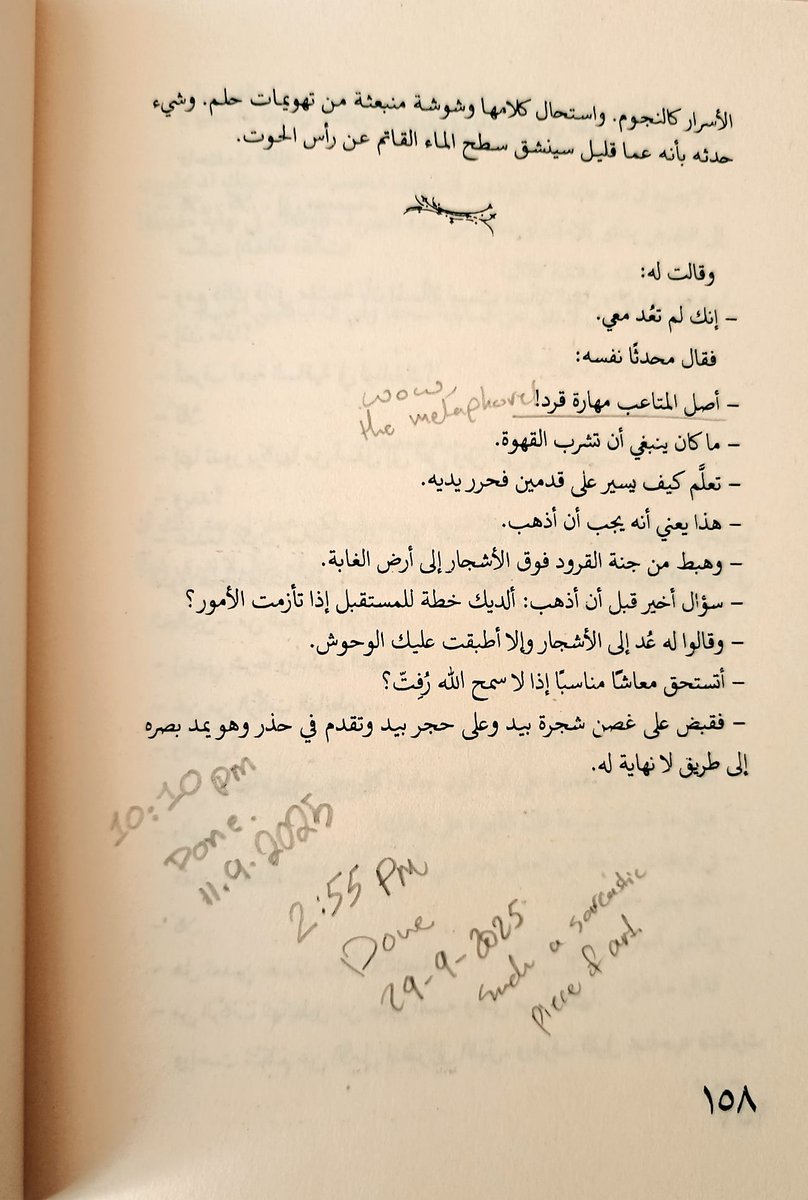 الأسرار كالنجوم. واستحال كلامها وشوشة منبعثة من تهويمات حلم. وشيء
حدثه بأنه عما قليل سينشق سطح الماء القاتم عن رأس الحوت.
وقالت له:
– إنك لم تعُد معي.
فقال محدثًا نفسه:
– أصل المتاعب مهارة قرد!
wow,
the metaphore!
– ما كان ينبغي أن تشرب القهوة.
– تعلَّم كيف يسير على قدمين فحرر يديه.
– هذا يعني أنه يجب أن أذهب.
– وهبط من جنة القرود فوق الأشجار إلى أرض الغابة.
– سؤال أخير قبل أن أذهب: ألديك خطة للمستقبل إذا تأزمت الأمور؟
– وقالوا له عُد إلى الأشجار وإلا أطبقت عليك الوحوش.
– أتستحق معاشًا مناسبًا إذا لا سمح الله رُفِتّ؟
– فقبض على غصن شجرة بيد وعلى حجر بيد وتقدم في حذر وهو يمد بصره
إلى طريق لا نهاية له.
10:10 pm
Done.
11.9.2025
2:55 PM
Done
29-9-2025
such a sarcastic
piece of art.
١٥٨